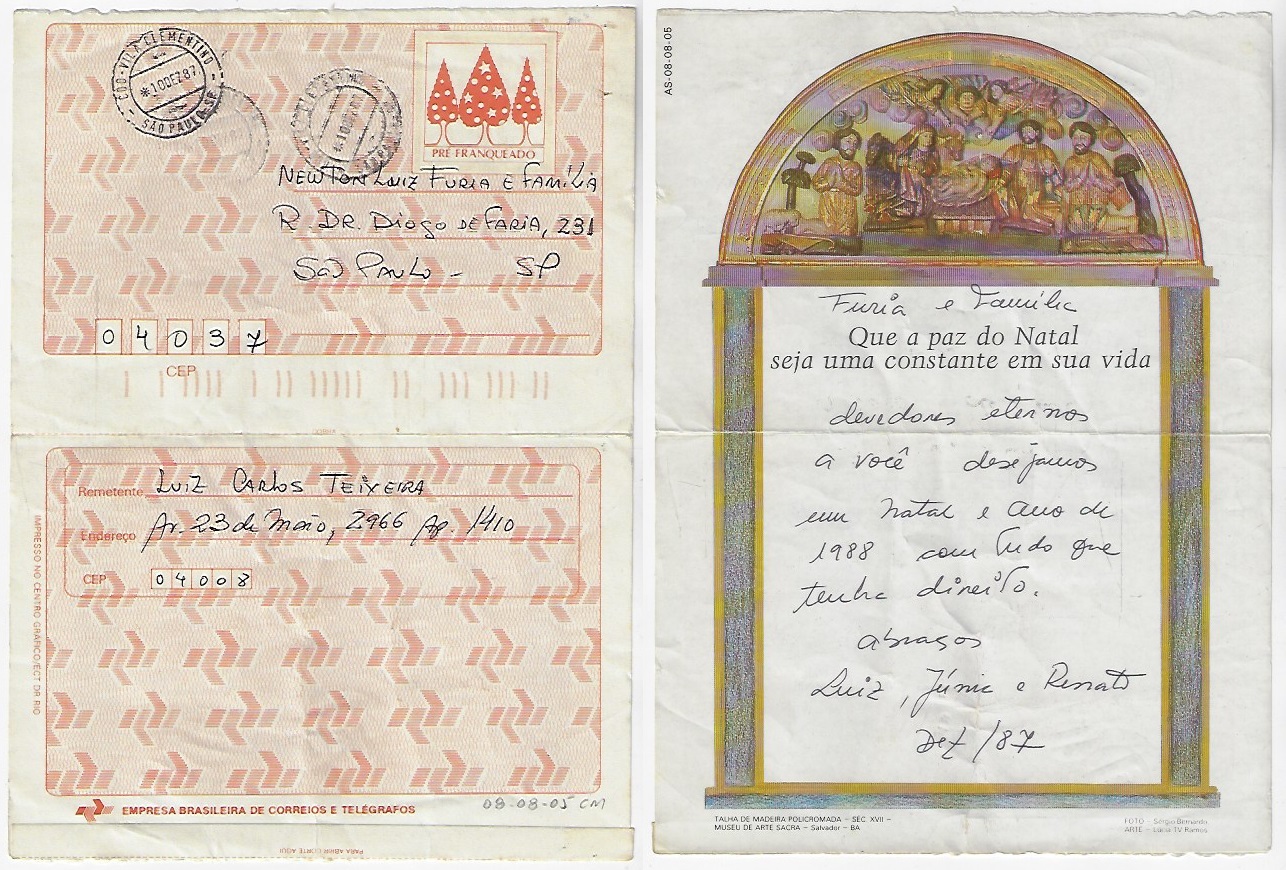 CDD-VILA CLEMENTINO
*10DEZ87
SÃO PAULO-SP
PRÉ FRANQUEADO
NEWTON LUIZ FURIA E FAMÍLIA
R. DR. DIOGO DE FARIA, 231
SÃO PAULO - SP
04037
CEP
Remetente LUIZ CARLOS TEIXEIRA
Endereço Av. 23 de Maio, 2966 Ap. 1410
CEP 04008
IMPRESSO NO CENTRO GRÁFICO/ECT DR RIO
EMPRESA BRASILEIRA DE CORREIOS E TELÉGRAFOS
08-08-05 CM
PARA ABRIR CORTE AQUI
AS-08-08-05
Furia e Família
Que a paz do Natal
seja uma constante em sua vida
devedores eternos
a você desejamos
um Natal e ano de
1988 com tudo que
tenha direito.
abraços
Luiz, Júnia e Renato
Dez/87
TALHA DE MADEIRA POLICROMADA – SEC XVII –
MUSEU DE ARTE SACRA – Salvador – BA
FOTO – Sérgio Bernardo
ARTE – Lúcia TV Ramos